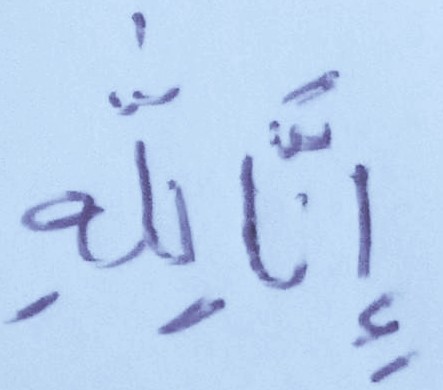 إِنَّا لِلَّٰهِ